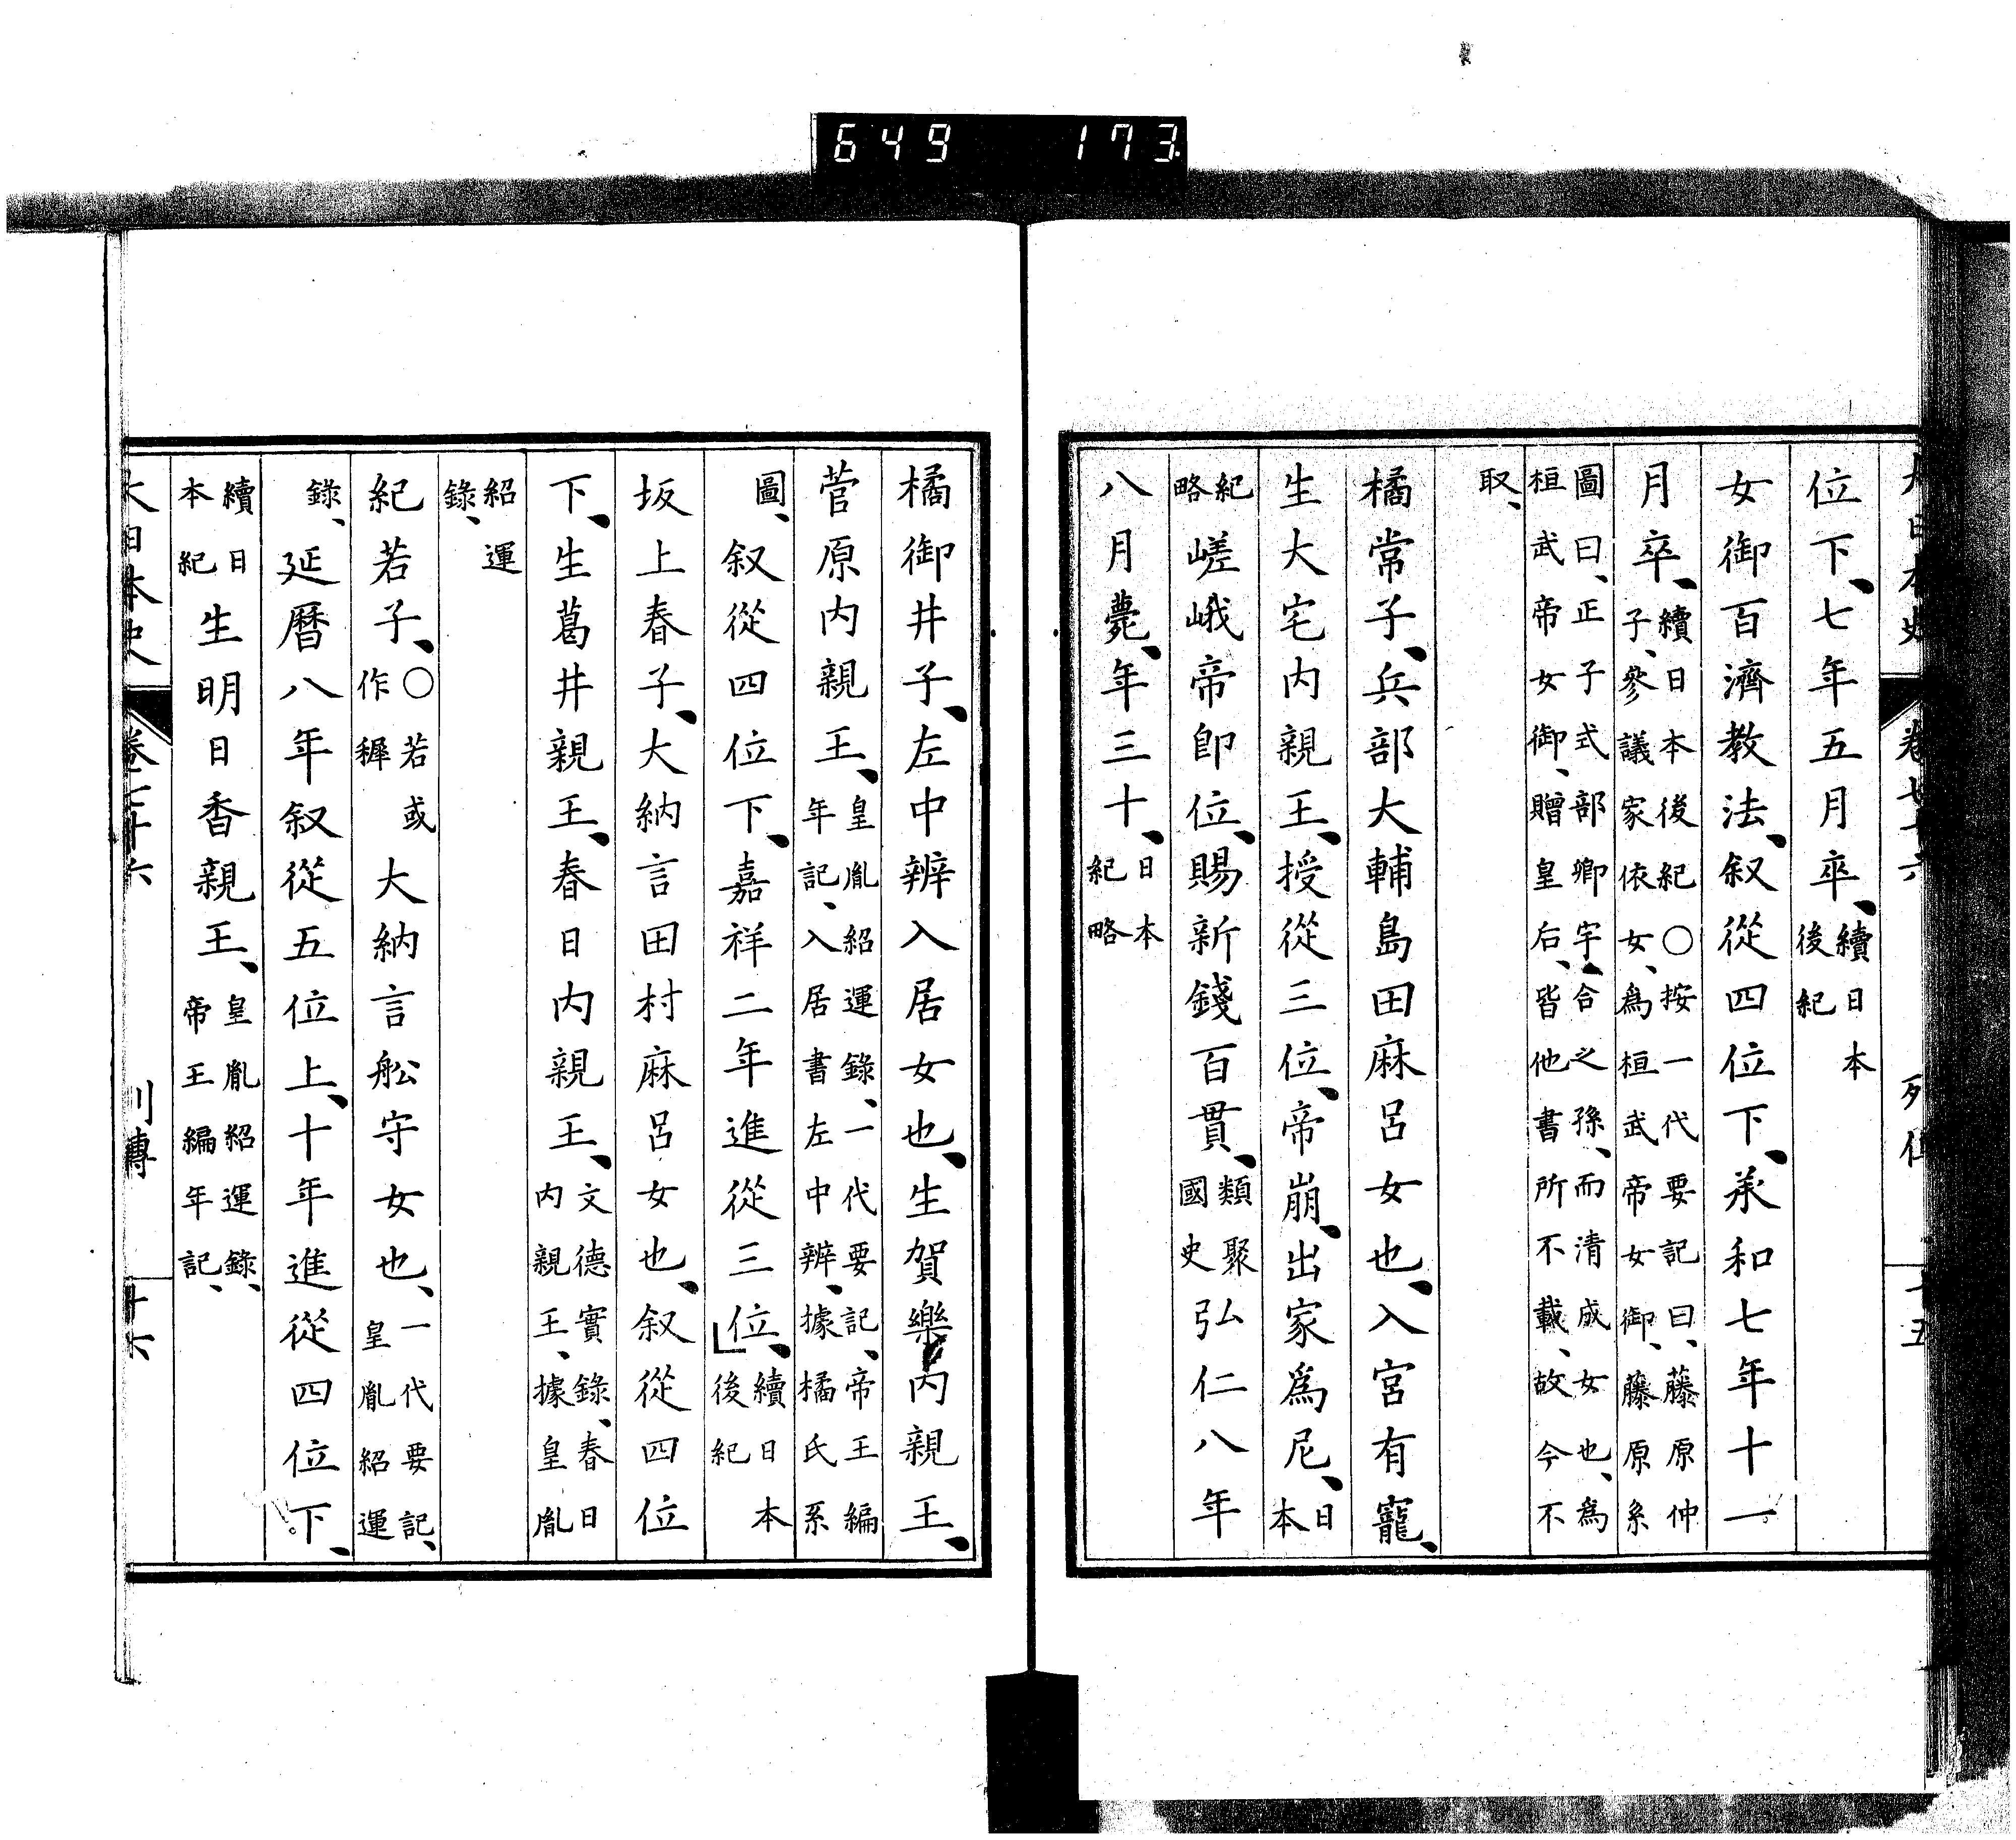 649 173
位下、七年五月卒、續日本後紀
女御百濟教法、叙從四位下、承和七年十一
月卒、續日本後紀○按一代要記曰、藤原仲子、參議家依女、爲桓武帝女御、藤原系
圖曰、正子式部卿宇合之孫、而清成女也、爲桓武帝女御、贈皇后、皆他書所不載、故今不
取、
橘常子、兵部大輔島田麻呂女也、入宮有寵、
生大宅内親王、授從三位、帝崩、出家爲尼、日本
紀略嵯峨帝即位、賜新錢百貫、類聚國史弘仁八年
八月薨、年三十、日本紀略
橘御井子、左中辨入居女也、生賀樂内親王、
菅原内親王、皇胤紹運錄、一代要記、帝王編年記、入居書左中辨、據橘氏系
圖、叙從四位下、嘉祥二年進從三位、續日本後紀
坂上春子、大納言田村麻呂女也、叙從四位
下、生葛井親王、春日内親王、文德實錄、春日内親王、據皇胤
紹運錄、
紀若子、○若或作穉大納言舩守女也、一代要記、皇胤紹運
錄、延曆八年叙從五位上、十年進從四位下、
續日本紀生明日香親王、皇胤紹運錄、帝王編年記、
大日本史 卷七十六 列傳 十六